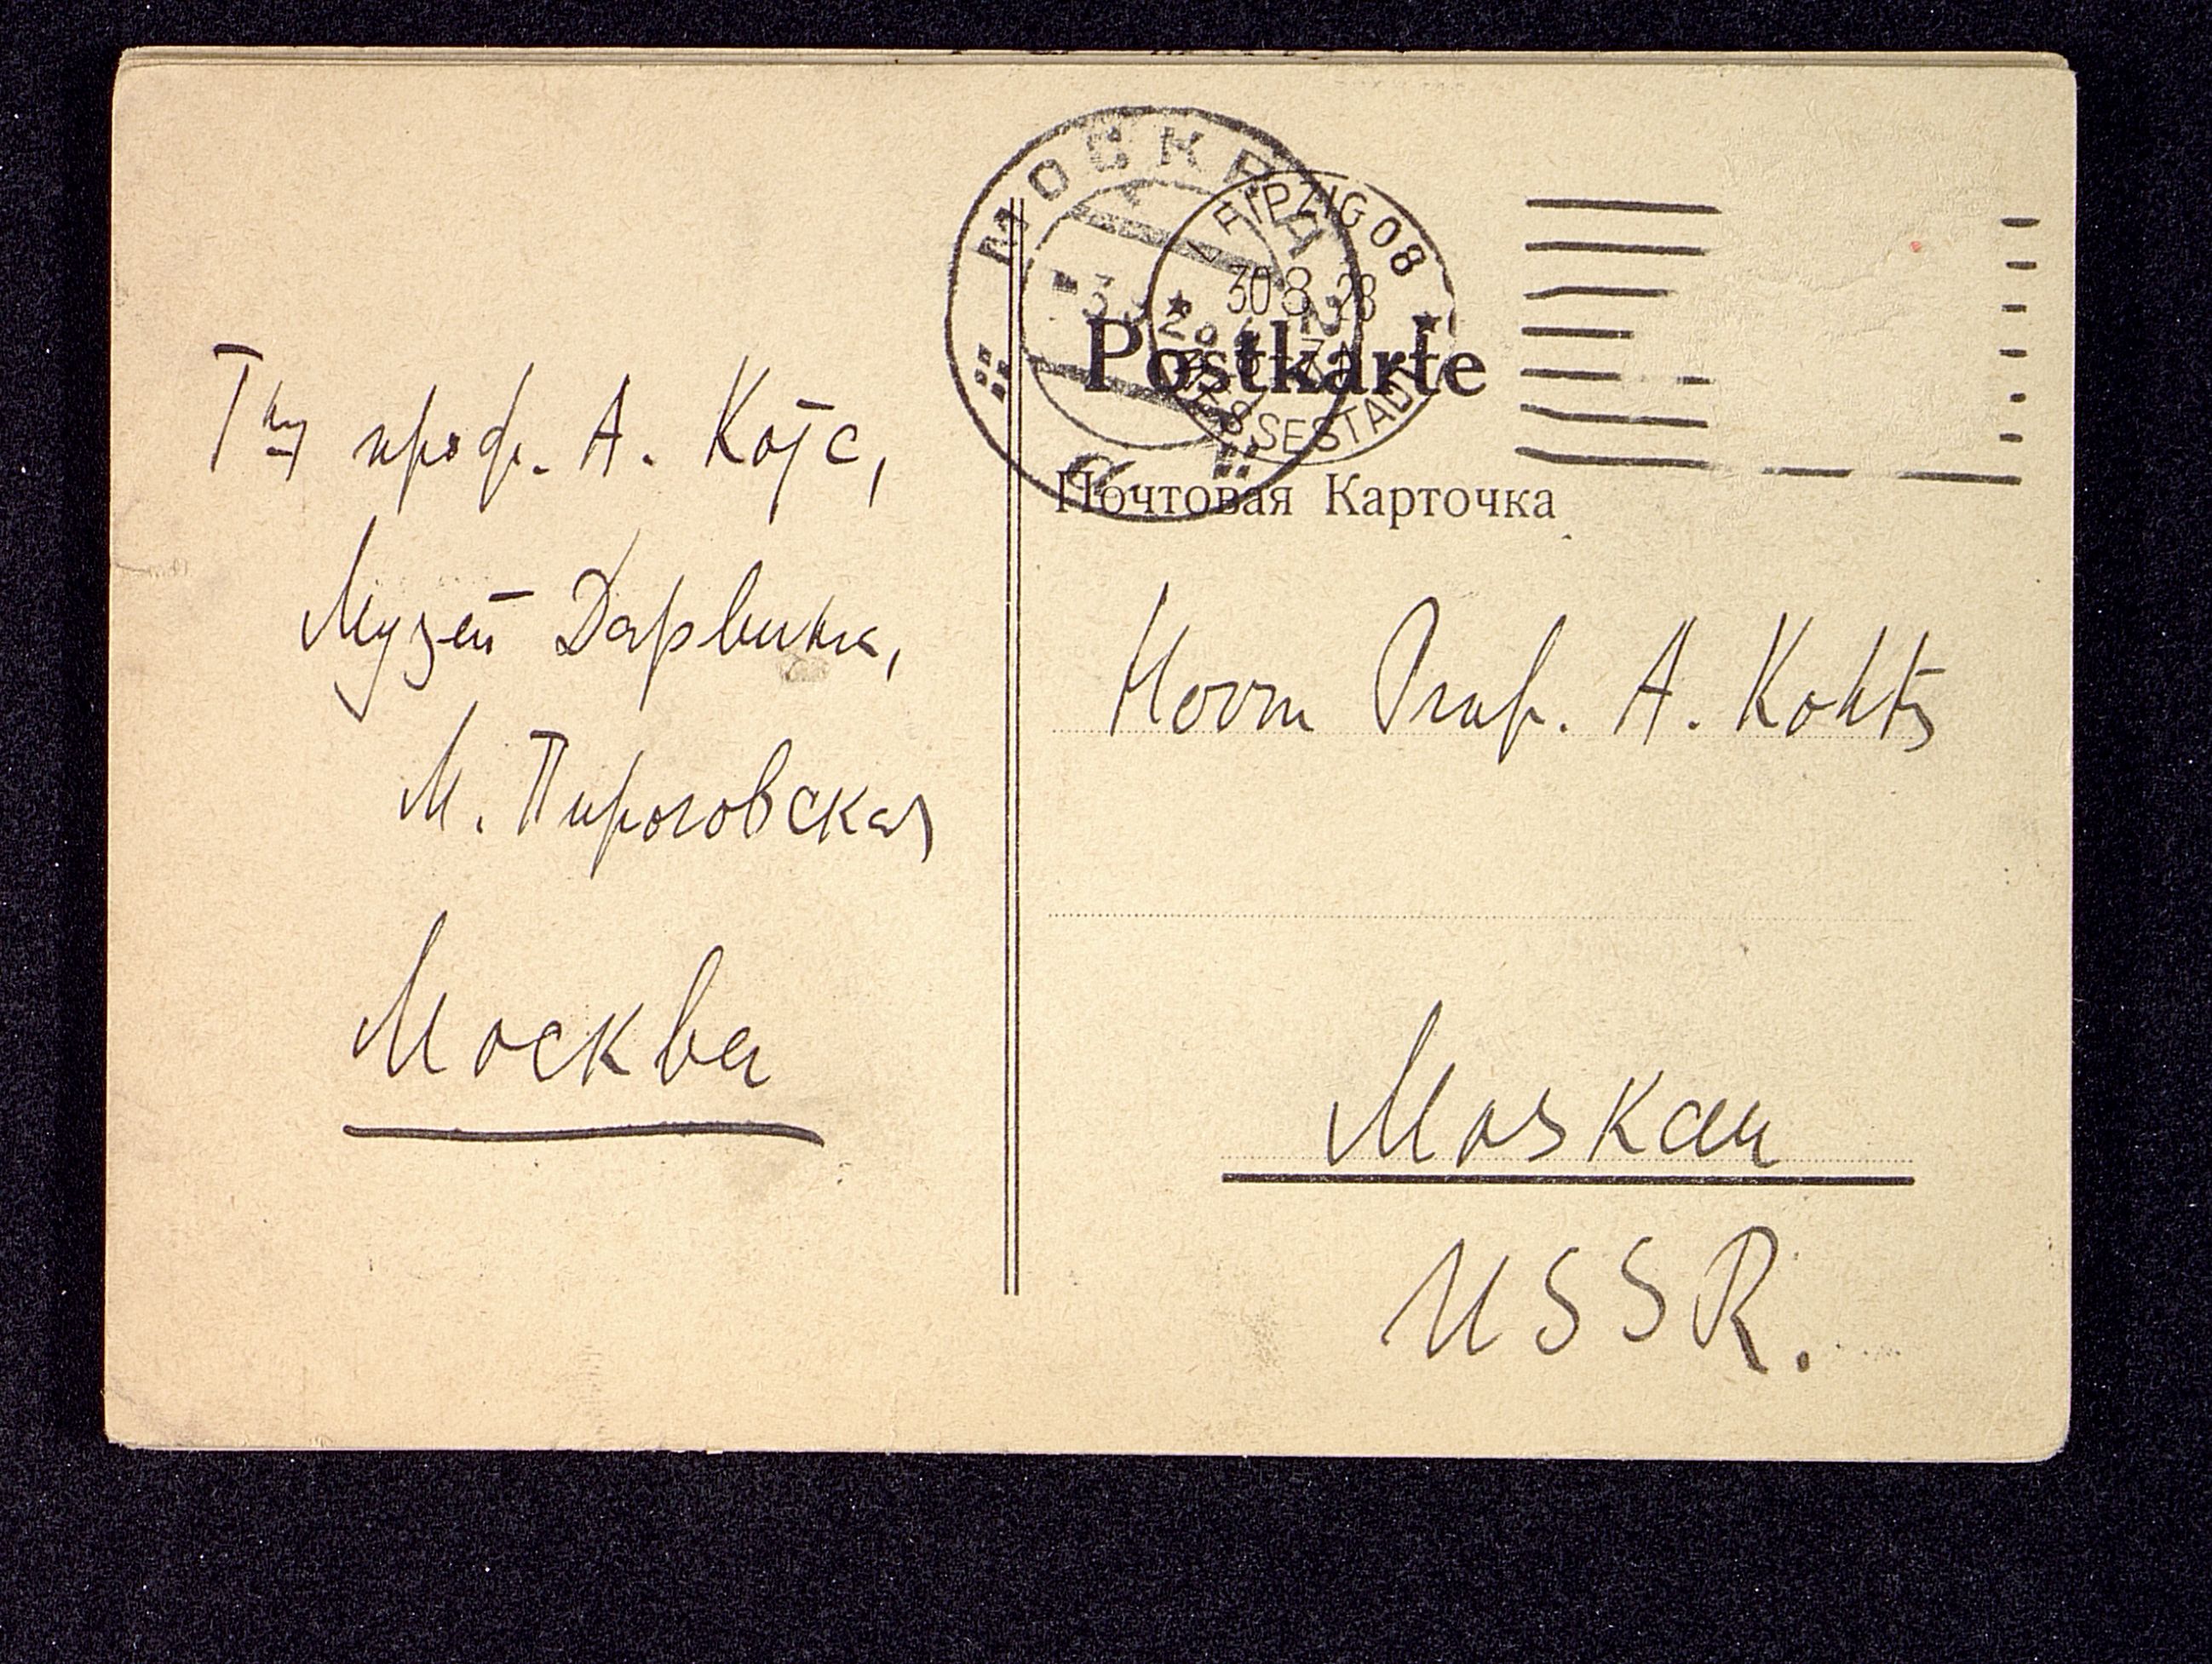 Гну проф. А. Котс,
Музей Дарвина,
М. Пироговская
Москва
МОСКВА
LEIPZIG 08
30.8.28
MESSESTADT
Postkarte
Почтовая Карточка
Herrn Prof. A. Kohts
Moskau
USSR.